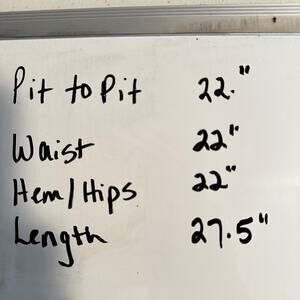 Pit to Pit 22."
Waist 22"
Hem/Hips 22"
Length 27.5"